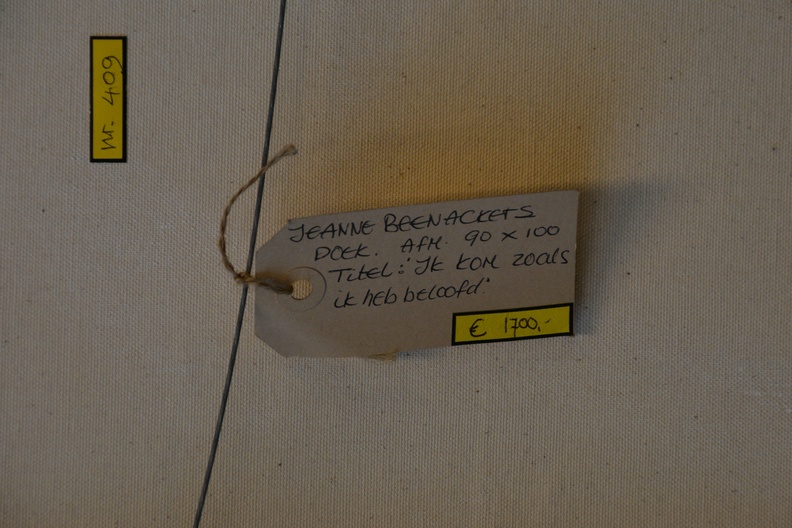 nr. 409
JEANNE BEENACKERS
DOEK. AFM. 90 x 100
Titel: "Ik kom zoals
ik heb beloofd."
€ 1700,-